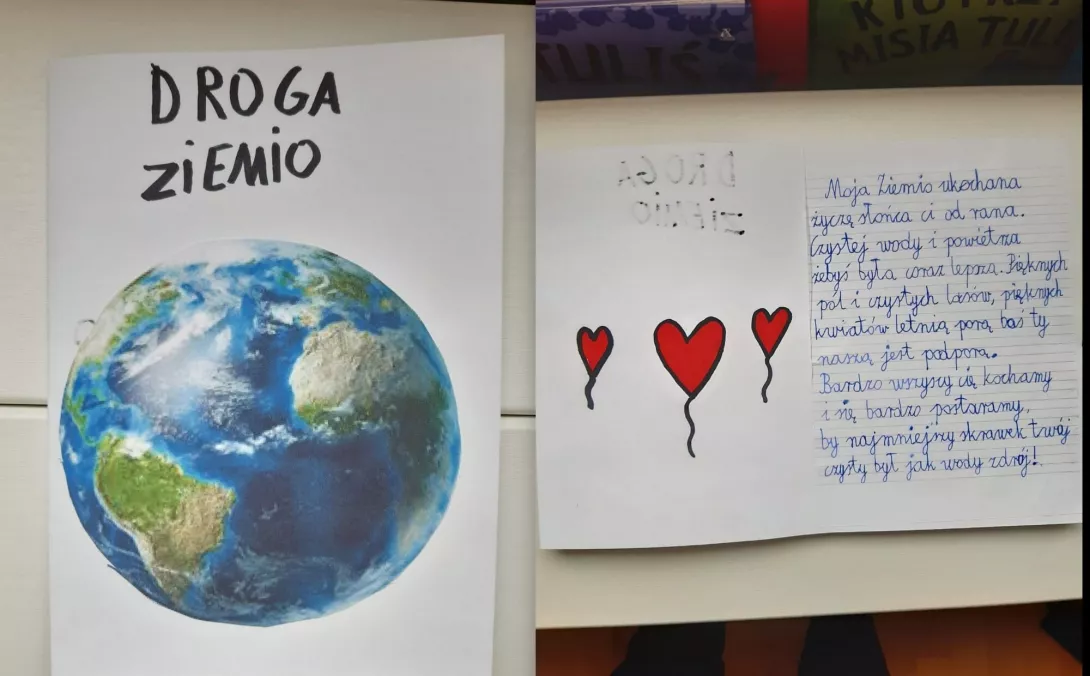 DROGA
ZiEMiO
TULIŚ
KTO PRZY
MISIA TULI
DROGA
ZiEMiO
Moja Ziemio ukochana
życzę słońca ci od rana.
Czystej wody i powietrza
żebyś była coraz lepsza. Pięknych
pól i czystych lasów, pięknych
kwiatów letnią porą baś ty
naszą jest podporą.
Bardzo wszyscy cię kochamy
i się bardzo postaramy,
by najmniejszy skrawek twój
czysty był jak wody zdrój!